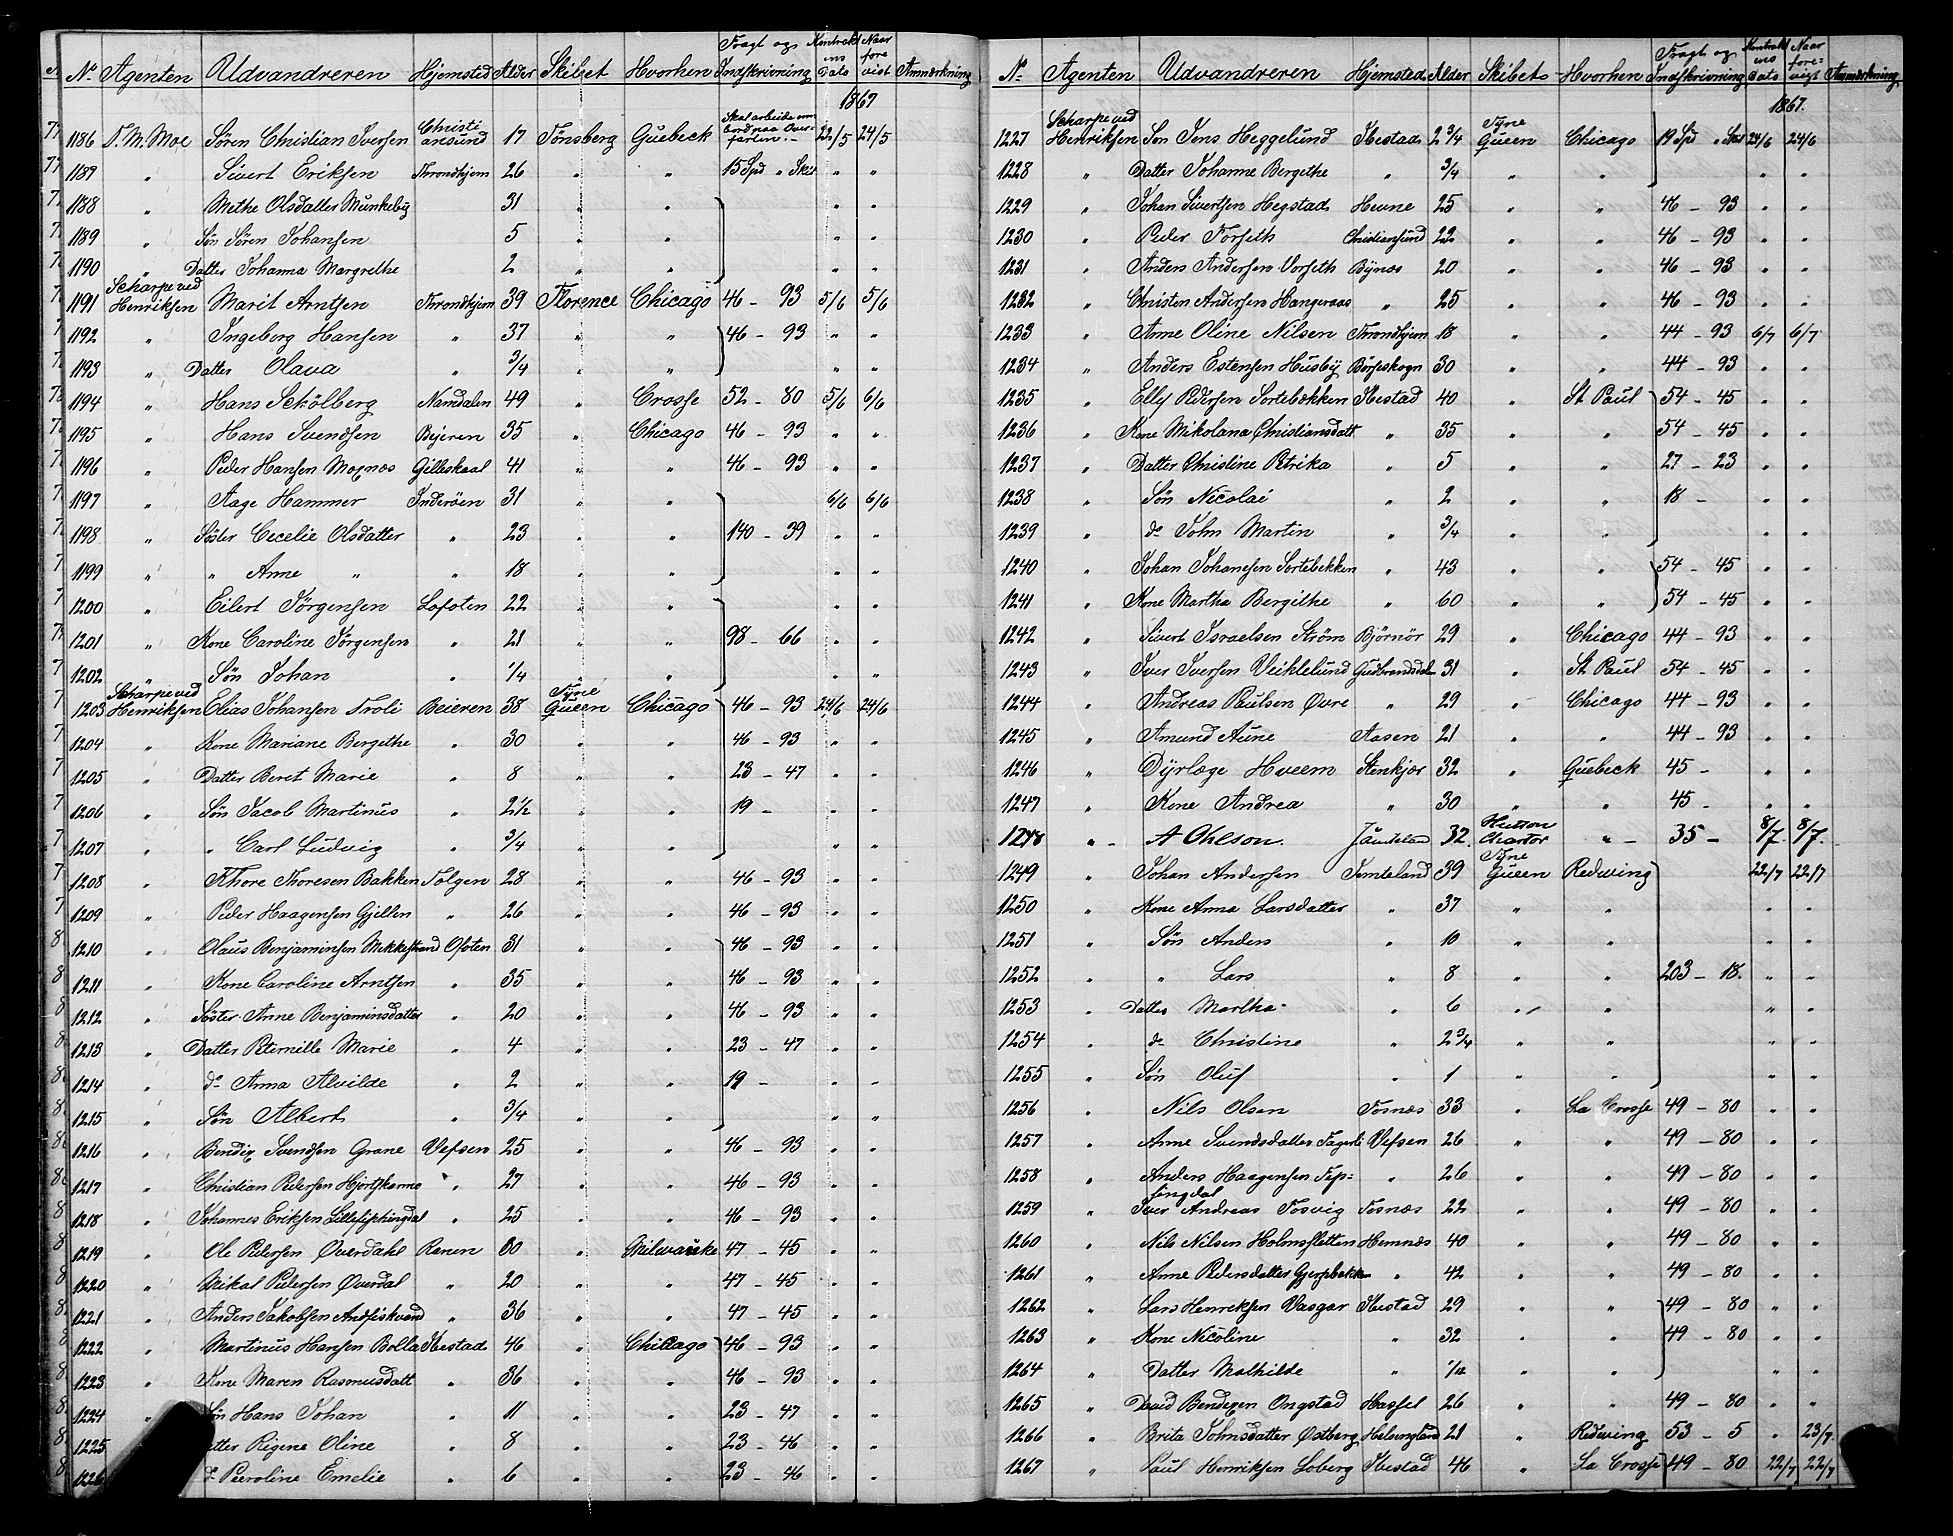 No Agenten Udvandreren Hjemsted Alder Skibet Hvorhen Fragt og Indskrivning Kontraktens Dato Naar forevist Anmærkning
1867
1186 N. M. Moe Sören Christian Iversen Christiansund 17 Tønsberg Quebeck Skal arbeide ombord paa Overfarten 22/5 24/5
1189 " Sivert Eriksen Throndhjem 26 " " 15 Spd " Skil " "
1188 " Methe Olsdatter Munkeby 31 " " " "
1189 " Sön Sören Johansen 5 " " " "
1190 " Datter Johanna Margrethe 2 " " " "
1191 Scharpe ved Henriksen Marit Arntsen Throndhjem 39 Florence Chicago 46 - 93 5/6 5/6
1192 " Ingeborg Hansen " 37 " " 46 - 93 " "
1193 " Datter Olava " 3/4 " " " "
1194 " Hans Schölberg Namdalen 49 " Crosse 52 - 80 5/6 6/6
1195 " Hans Svendsen Bejeren 35 " Chicago 46 - 93 " "
1196 " Peder Hansen Moxnæs Gilleskaal 41 " " 46 - 93 " "
1197 " Aage Hammer Inderöen 31 " " 6/6 6/6
1198 " Söster Cecelie Olsdatter " 23 " " 140 - 39 " "
1199 " " Anne " " 18 " " " "
1200 " Eilert Jörgensen Lofoten 22 " " " "
1201 " Kone Caroline Jörgensen " 21 " " 98 - 66 " "
1202 " Sön Johan " 1/4 " " " "
1203 Scharpe ved Henriksen Elias Johansen Troli Beieren 38 Tyne Queen Chicago 46 - 93 24/6 24/6
1204 " Kone Mariane Bergethe " 30 " " 46 - 93 " "
1205 " Datter Beret Marie " 8 " " 23 - 47 " "
1206 " Sön Jacob Martinus " 2 1/2 " " 19 - " "
1207 " " Carl Ludvig " 3/4 " " " "
1208 " Thore Thoresen Bakken Tolgen 28 " " 46 - 93 " "
1209 " Peder Haagensen Gjellen " 26 " " 46 - 93 " "
1210 " Olaus Benjaminsen Mekkestrand Ofoten 31 " " 46 - 93 " "
1211 " Kone Caroline Arntsen " 35 " " 46 - 93 " "
1212 " Söster Anne Benjaminsdatter " 20 " " 46 - 93 " "
1213 " Datter Peternille Marie " 4 " " 23 - 47 " "
1214 " do Anna Alvilde " 2 " " 19 - " "
1215 " Sön Albert " 3/4 " " " "
1216 " Bendix Svendsen Grane Vefsen 25 " " 46 - 93 " "
1217 " Christian Pedersen " 27 " " 46 - 93 " "
1218 " Johannes Eriksen " 25 " " 46 - 93 " "
1219 " Ole Pedersen Øverdahl Renen 60 " Milwauke 47 - 45 " "
1220 " Mikal Pedersen Øverdal " 20 " " 47 - 45 " "
1221 " Anders Jakobsen Andfiskvand " 36 " " 47 - 45 " "
1222 " Martinus Hansen Bolla Ibestad 46 " Chicago 46 - 93 " "
1223 " Kone Maren Rasmusdatt " 36 " " 46 - 93 " "
1224 " Sön Hans Johan " 11 " " 23 - 47 " "
1225 Datter Regine Oline " 8 " " 23 - 46 " "
1226 do Peeroline Emelie " 6 " " 23 - 46 " "
No Agenten Udvandreren Hjemsted Alder Skibets Hvorhen Fragt og Indskrivning Kontraktens Dato Naar forevigt Anmærkning
1867.
1227 Scharpe ved Henriksen Sön Jens Heggelund Ibestad 2 3/4 Tyne Queen Chicago 19 Spd " Skil 24/6 24/6
1228 " Datter Johanne Bergethe " 3/4 " " " "
1229 " Johan Sivertsen Hegstad Hevne 25 " " 46 - 93 " "
1230 " Peder Forseth Christiansund 22 " " 46 - 93 " "
1231 " Anders Andersen Vorseth Bynæs 20 " " 46 - 93 " "
1232 " Christen Andersen Hangeraas " 25 " " 46 - 93 " "
1233 " Anne Oline Nilsen Throndhjem 18 " " 44 - 93 6/7 6/7
1234 " Anders Estensen Husby Börseskogn 30 " " 44 - 93 " "
1235 " Elly Pedersen Sortebækken Ibestad 40 " St Paul 54 - 45 " "
1236 " Kone Mikolana Christiansdatt " 35 " " 54 - 45 " "
1237 " Datter Christine Petrika " 5 " " 27 - 23 " "
1238 " Sön Nicolai " 2 " " 18 - " "
1239 " do John Martin " 3/4 " " " "
1240 " Johan Johansen Sortebekken " 43 " " 54 - 45 " "
1241 " Kone Martha Bergithe " 60 " " 54 - 45 " "
1242 " Sivert Israelsen Ström Björnör 29 " Chicago 44 - 93 " "
1243 " Iver Iversen Veiklelund Gudbrandsdal 31 " St Paul 54 - 45 " "
1244 " Andreas Paulsen Øvre " 29 " Chicago 44 - 93 " "
1245 " Amund Aune Aasen 21 " " 44 - 93 " "
1246 " Dyrlæge Hveem Stenkjær 32 " Quebeck 45 - " "
1247 " Kone Andrea " 30 " " 45 - " "
1248 " A Ohlson. Jämteland 32. Hutson Chartor " 35 - 8/7. 8/7.
1249 " Johan Andersen Jemteland 39 Tyne Queen Redwing 22/7 22/7
1250 " Kone Anna Larsdatter " 37 " " " "
1251 " Sön Anders " 10 " " " "
1252 " " Lars " 8 " " 203 - 18. " "
1253 " Datter Martha " 6 " " " "
1254 " do Christine " 2 3/4 " " " "
1255 " Sön Oluf " 1 " " " "
1256 " Nils Olsen Fosnæs 33 " La Crosse 49 - 80 " "
1257 " Anne Svendsdatter Fagerli Vefsen 26 " " 49 - 80 " "
1258 " Anders Haagensen Fipfingdal " 26 " " 49 - 80 " "
1259 " Iver Andreas Fosvig Fosnæs 22 " " 49 - 80 " "
1260 " Nils Nilsen Holmsletten Hemnæs 40 " " 49 - 80 " "
1261 " Anne Pedersdatter Gjerpbakken " 42 " " 49 - 80 " "
1262 " Lars Henriksen Vasgar Ibestad 29 " " 49 - 80 " "
1263 " Kone Nicoline " 32 " " 49 - 80 " "
1264 " Datter Mathilde " " " " "
1265 " David Bendixen Ongstad Hassel 26 " " 49 - 80 " "
1266 " Brita Johnsdatter Østberg Helsingland 21 " Redwing 53 - 5 " 23/7
1267 " Paul Henriksen Soberg Ibestad 46 " La Crosse 49 - 80 22/7 22/7